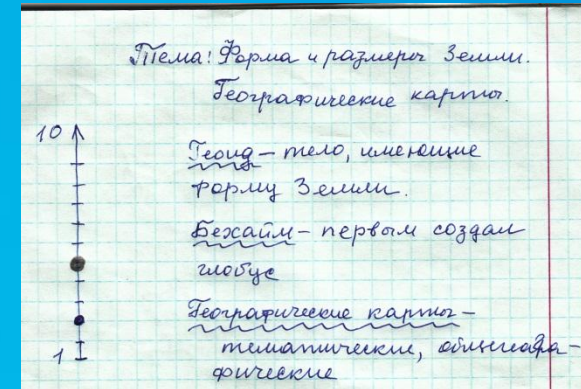 Тема: Форма и размеры Земли.
Географические карты.
10
Геоид – тело, имеющие
форму Земли.
Бехайм – первым создал
глобус
Географические карты –
1
тематические, общегеогра-
фические